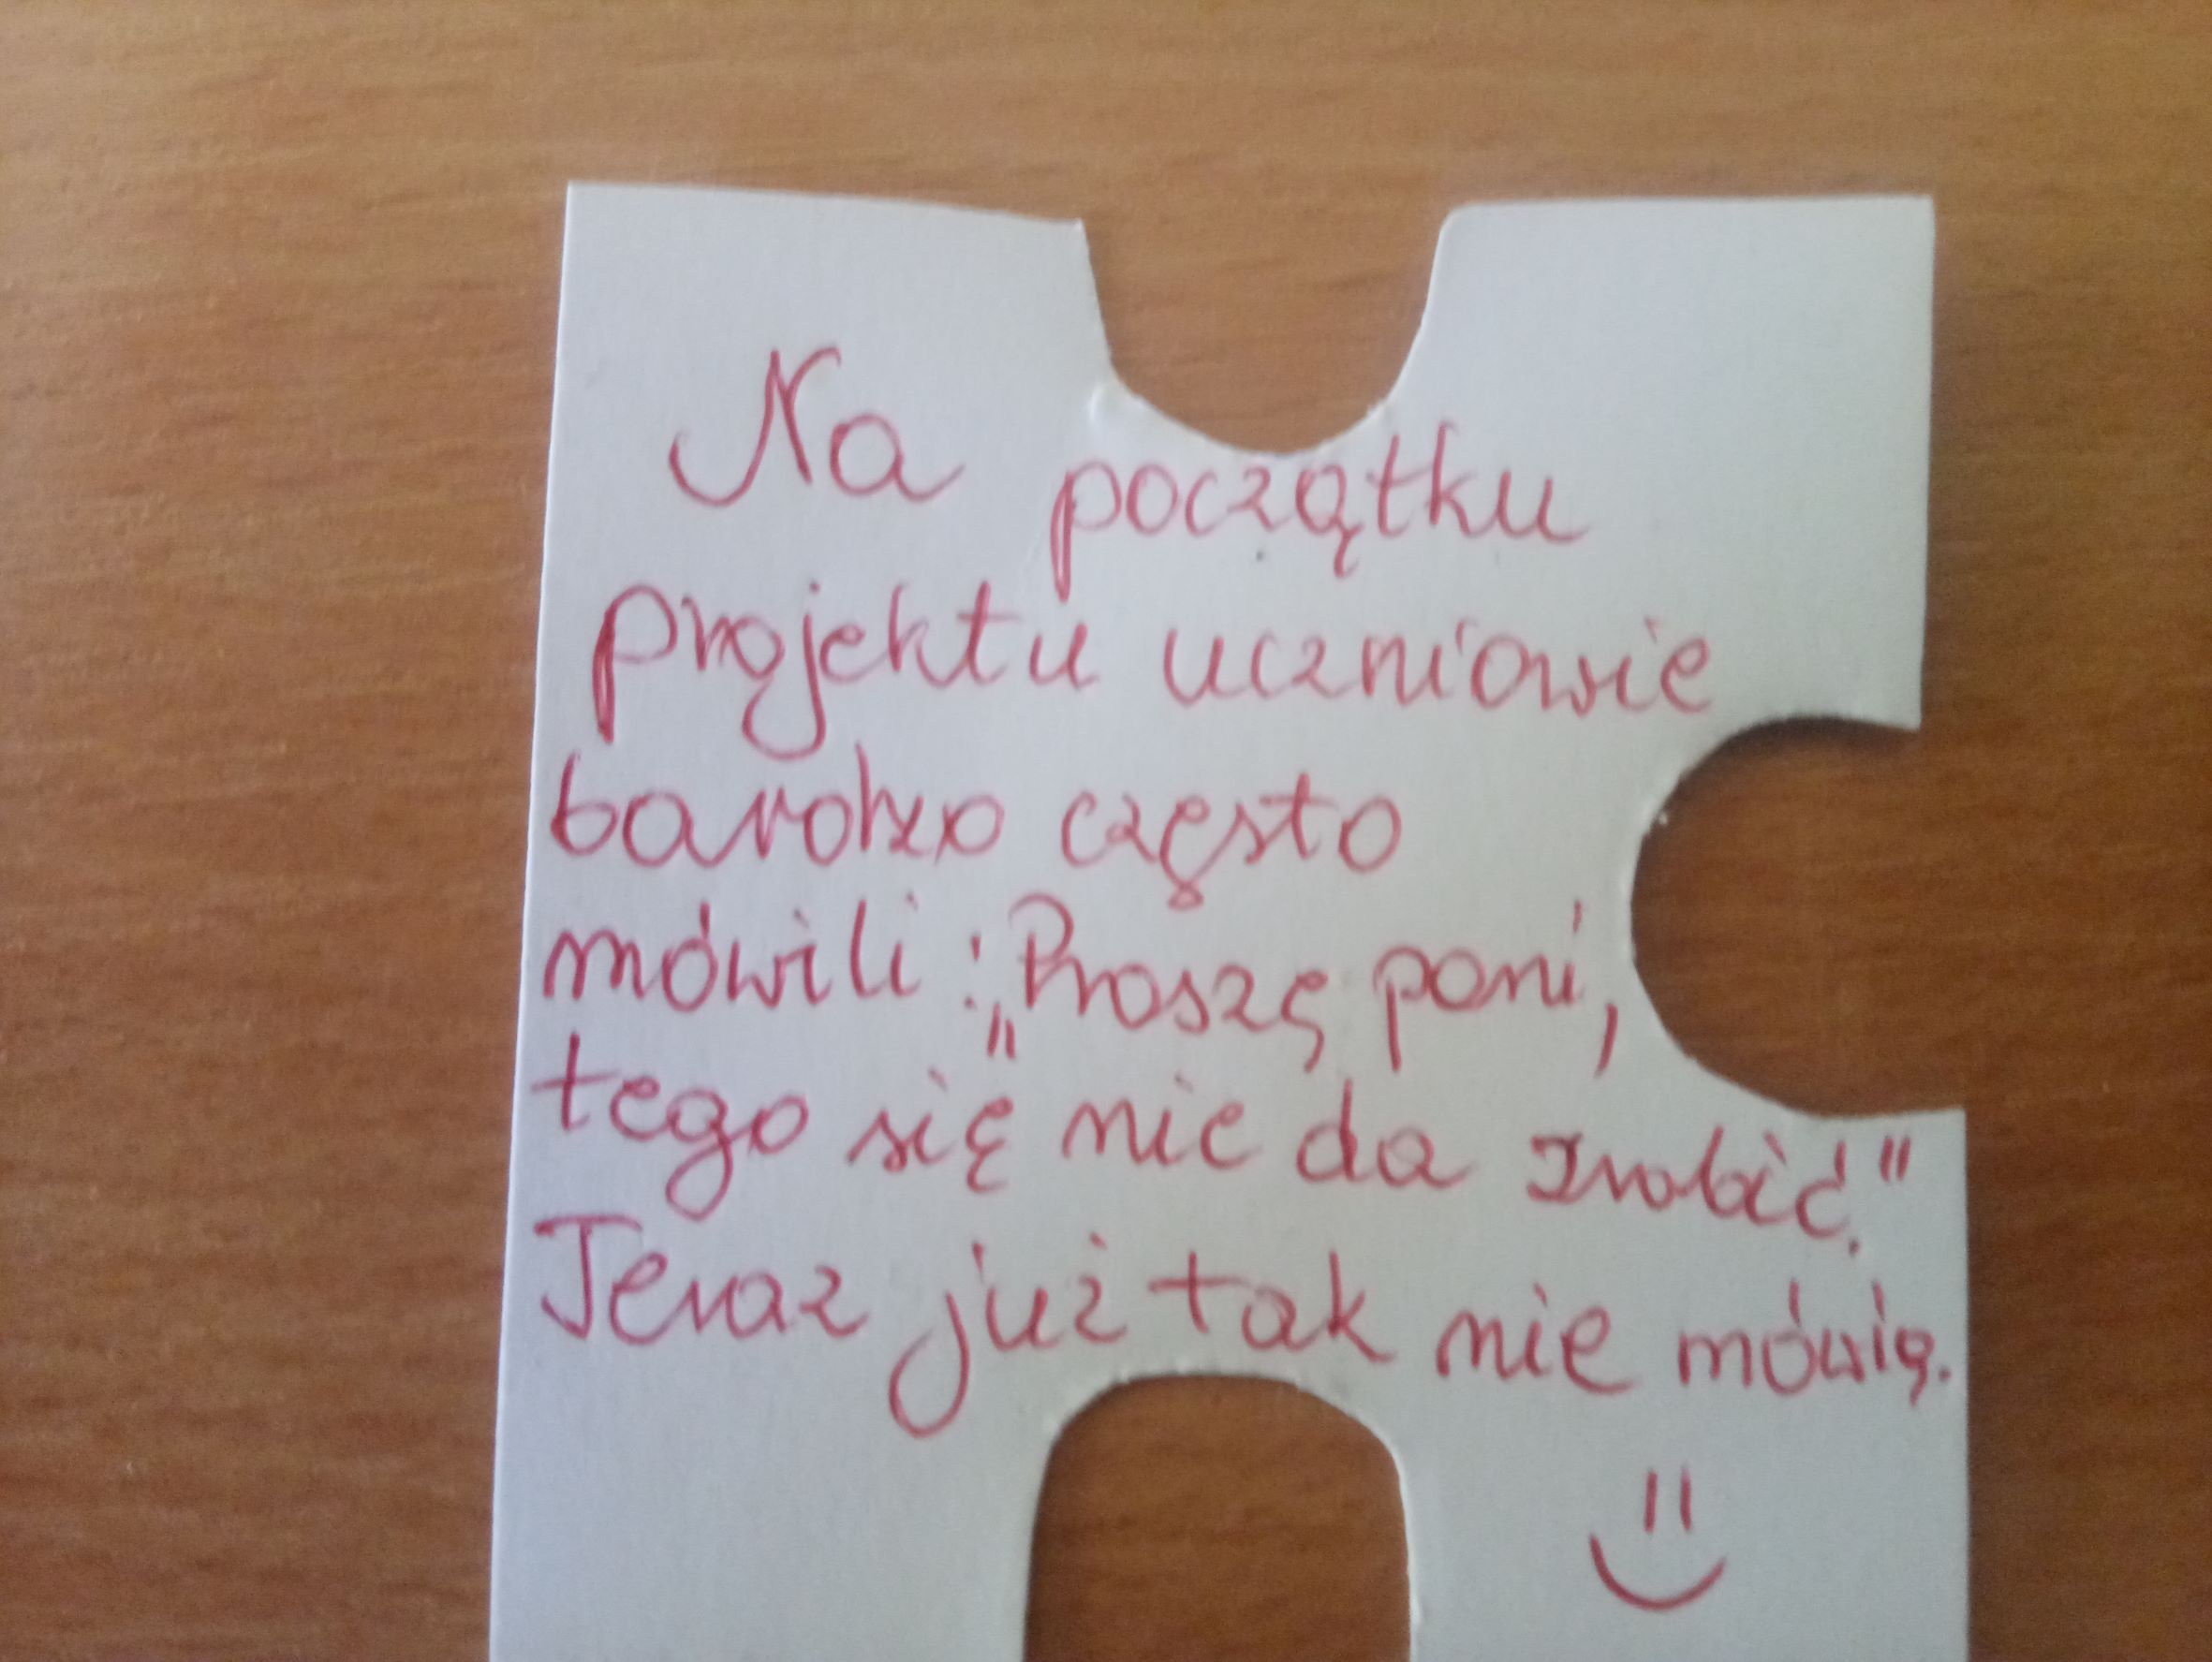 Na początku
projektu uczniowie
bardzo często
mówili: „Proszę pani,
tego się nie da zrobić."
Teraz już tak nie mówią.